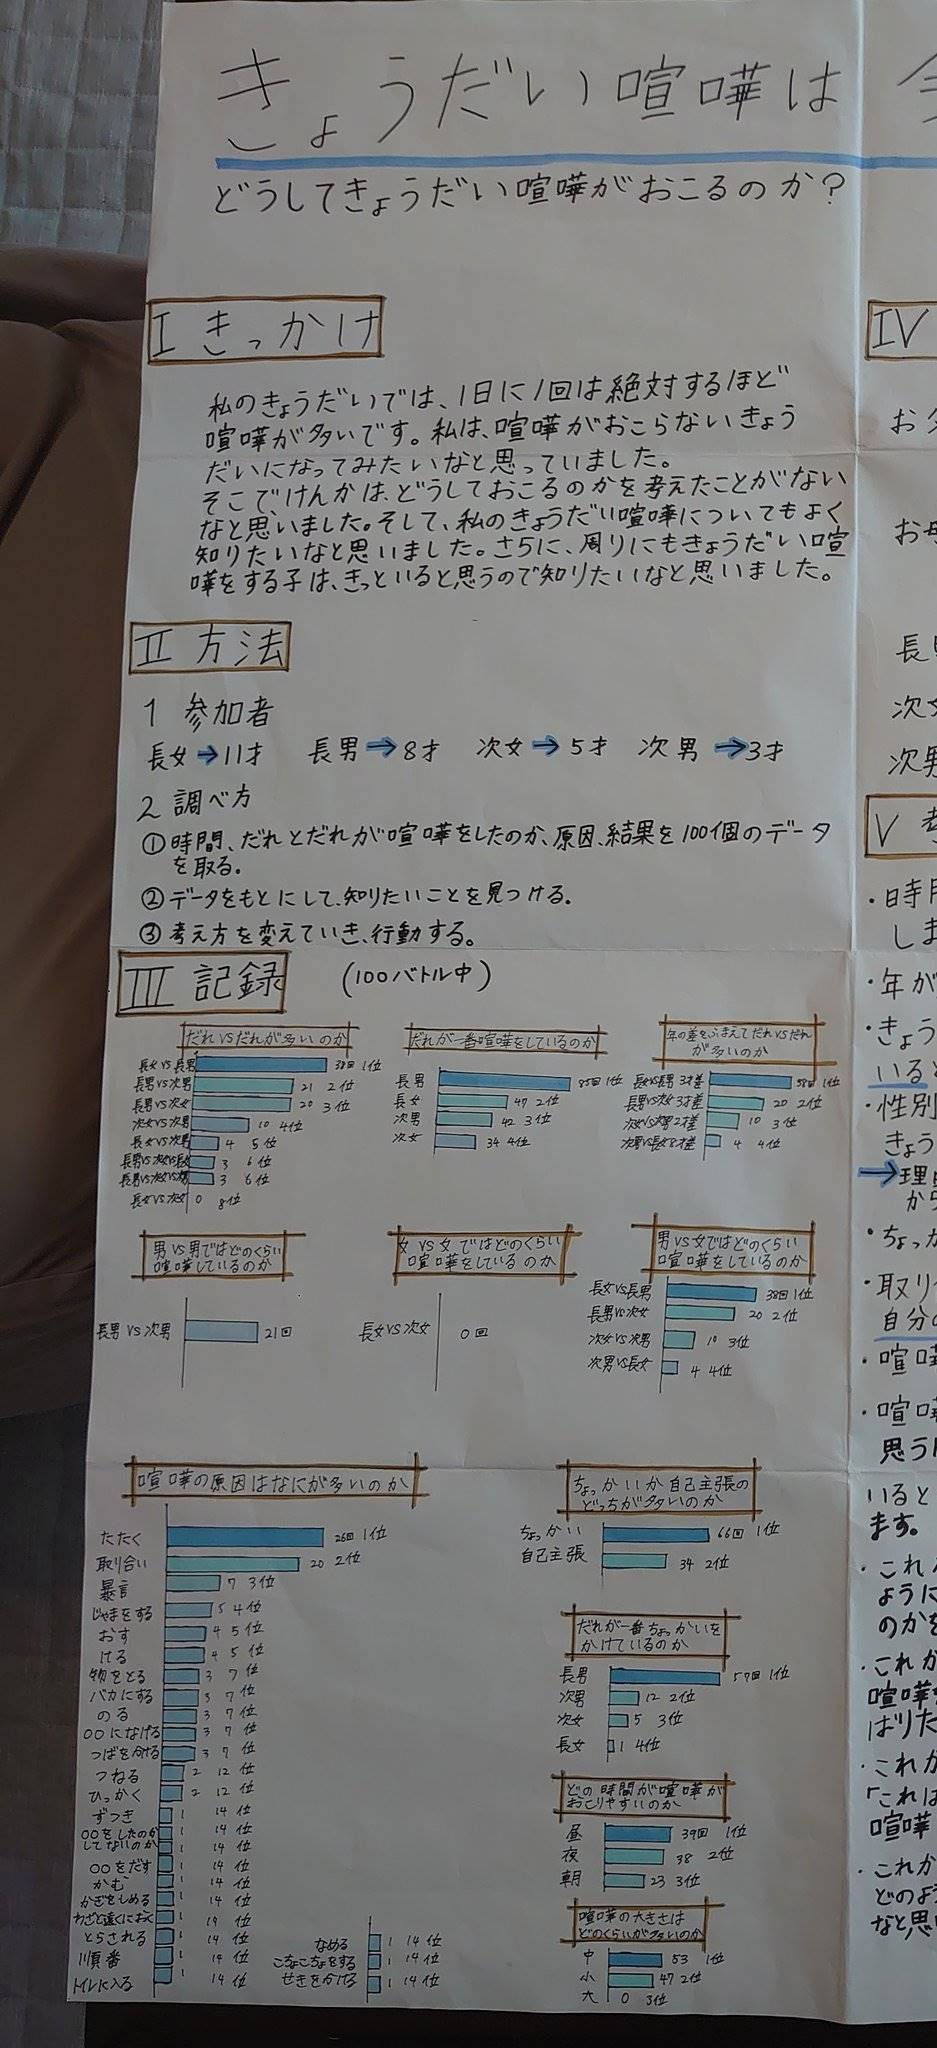 きょうだい喧嘩は
どうしてきょうだい喧嘩がおこるのか?
I きっかけ
私のきょうだいでは、1日に1回は絶対するほど
喧嘩が多いです。私は、喧嘩がおこらないきょう
だいになってみたいなと思っていました。
そこで、けんかは、どうしておこるのかを考えたことがない
なと思いました。そして、私のきょうだい喧嘩についてもよく
知りたいなと思いました。さらに、周りにもきょうだい喧
嘩をする子は、きっといると思うので知りたいなと思いました。
II 方法
1 参加者
長女→11才 長男→8才 次女→5才 次男→3才
2 調べ方
①時間、だれとだれが喧嘩をしたのか、原因、結果を100個のデータ
を取る。
②データをもとにして、知りたいことを見つける。
③考え方を変えていき、行動する。
III 記録 (100バトル中)
だれVSだれが多いのか
長女VS長男 38回 1位
長男VS次男 21 2位
長男VS次女 20 3位
次女VS次男 10 4位
長女VS次男 4 5位
長男VS次女VS長女 3 6位
長男VS次女VS次男 3 6位
長女VS次女 0 8位
だれが一番喧嘩をしているのか
長男 85回 1位
長女 47 2位
次男 42 3位
次女 34 4位
年の差をふまえてだれVSだれ
が多いのか
長女VS長男 3才差 58回 1位
長男VS次女 3才差 20 2位
次女VS次男 2才差 10 3位
次男VS長女 8才差 4 4位
男VS男ではどのくらい
喧嘩しているのか
長男VS次男 21回
女VS女ではどのくらい
喧嘩をしているのか
長女VS次女 0回
男VS女ではどのくらい
喧嘩をしているのか
長女VS長男 38回 1位
長男VS次女 20 2位
次女VS次男 10 3位
次男VS長女 4 4位
喧嘩の原因はなにが多いのか
たたく 26回 1位
取り合い 20 2位
暴言 7 3位
じゃまをする 5 4位
おす 4 5位
ける 4 5位
物をとる 3 7位
バカにする 3 7位
のる 3 7位
○○になげる 3 7位
つばをかける 3 7位
つねる 2 12位
ひっかく 2 12位
ずつき 1 14位
○○をしたのか
してないのか 1 14位
○○をだす 1 14位
かむ 1 14位
かぎをしめる 1 14位
わざと遠くにおく 1 14位
とらされる 1 14位
順番 1 14位
トイレに入る 1 14位
なめる 1 14位
こちょこちょをする 1 14位
せきをかける 1 14位
ちょっかいか自己主張の
どっちが多いのか
ちょっかい 66回 1位
自己主張 34 2位
だれが一番ちょっかいを
かけているのか
長男 57回 1位
次男 12 2位
次女 5 3位
長女 1 4位
どの時間が喧嘩が
おこりやすいのか
昼 39回 1位
夜 38 2位
朝 23 3位
喧嘩の大きさは
どのくらいが多いのか
中 53 1位
小 47 2位
大 0 3位
IV
お
お
長
次女
次男
V
・時
しま
・年が
・きょう
いると
・性別
きょう
→理由
から
・ちょっか
・取り
自分の
・喧嘩
・喧嘩
思う
いると
ます。
・これ
ように
のかを
・これか
喧嘩
ばりた
・これか
「これは
喧嘩
・これか
どのよう
なと思